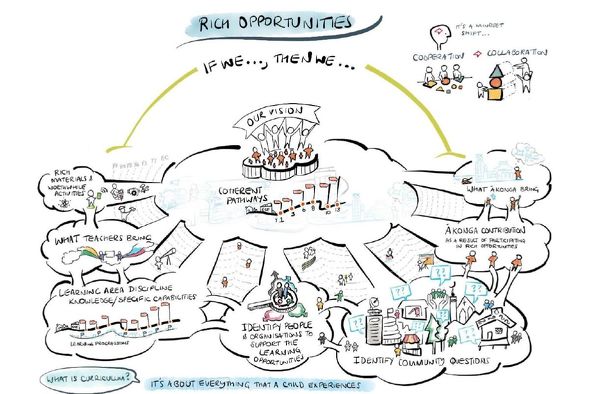 RICH OPPORTUNITIES
IT'S A MINDSET
SHIFT...
COOPERATION
COLLABORATION
IF WE..., THEN WE...
OUR VISION
COHERENT
PATHWAYS
RICH
MATERIALS &
WORTHWHILE
ACTIVITIES
WHAT TEACHERS BRING
LEARNING AREA DISCIPLINE
KNOWLEDGE/SPECIFIC CAPABILITIES
LEARNING PROGRESSIONS
IDENTIFY PEOPLE
& ORGANISATIONS TO
SUPPORT THE
LEARNING
OPPORTUNITIES
WHAT ĀKONGA BRING
ĀKONGA CONTRIBUTION
AS A RESULT OF PARTICIPATING
IN RICH OPPORTUNITIES
IDENTIFY COMMUNITY QUESTIONS
WHAT IS CURRICULUM?
IT'S ABOUT EVERYTHING THAT A CHILD EXPERIENCES